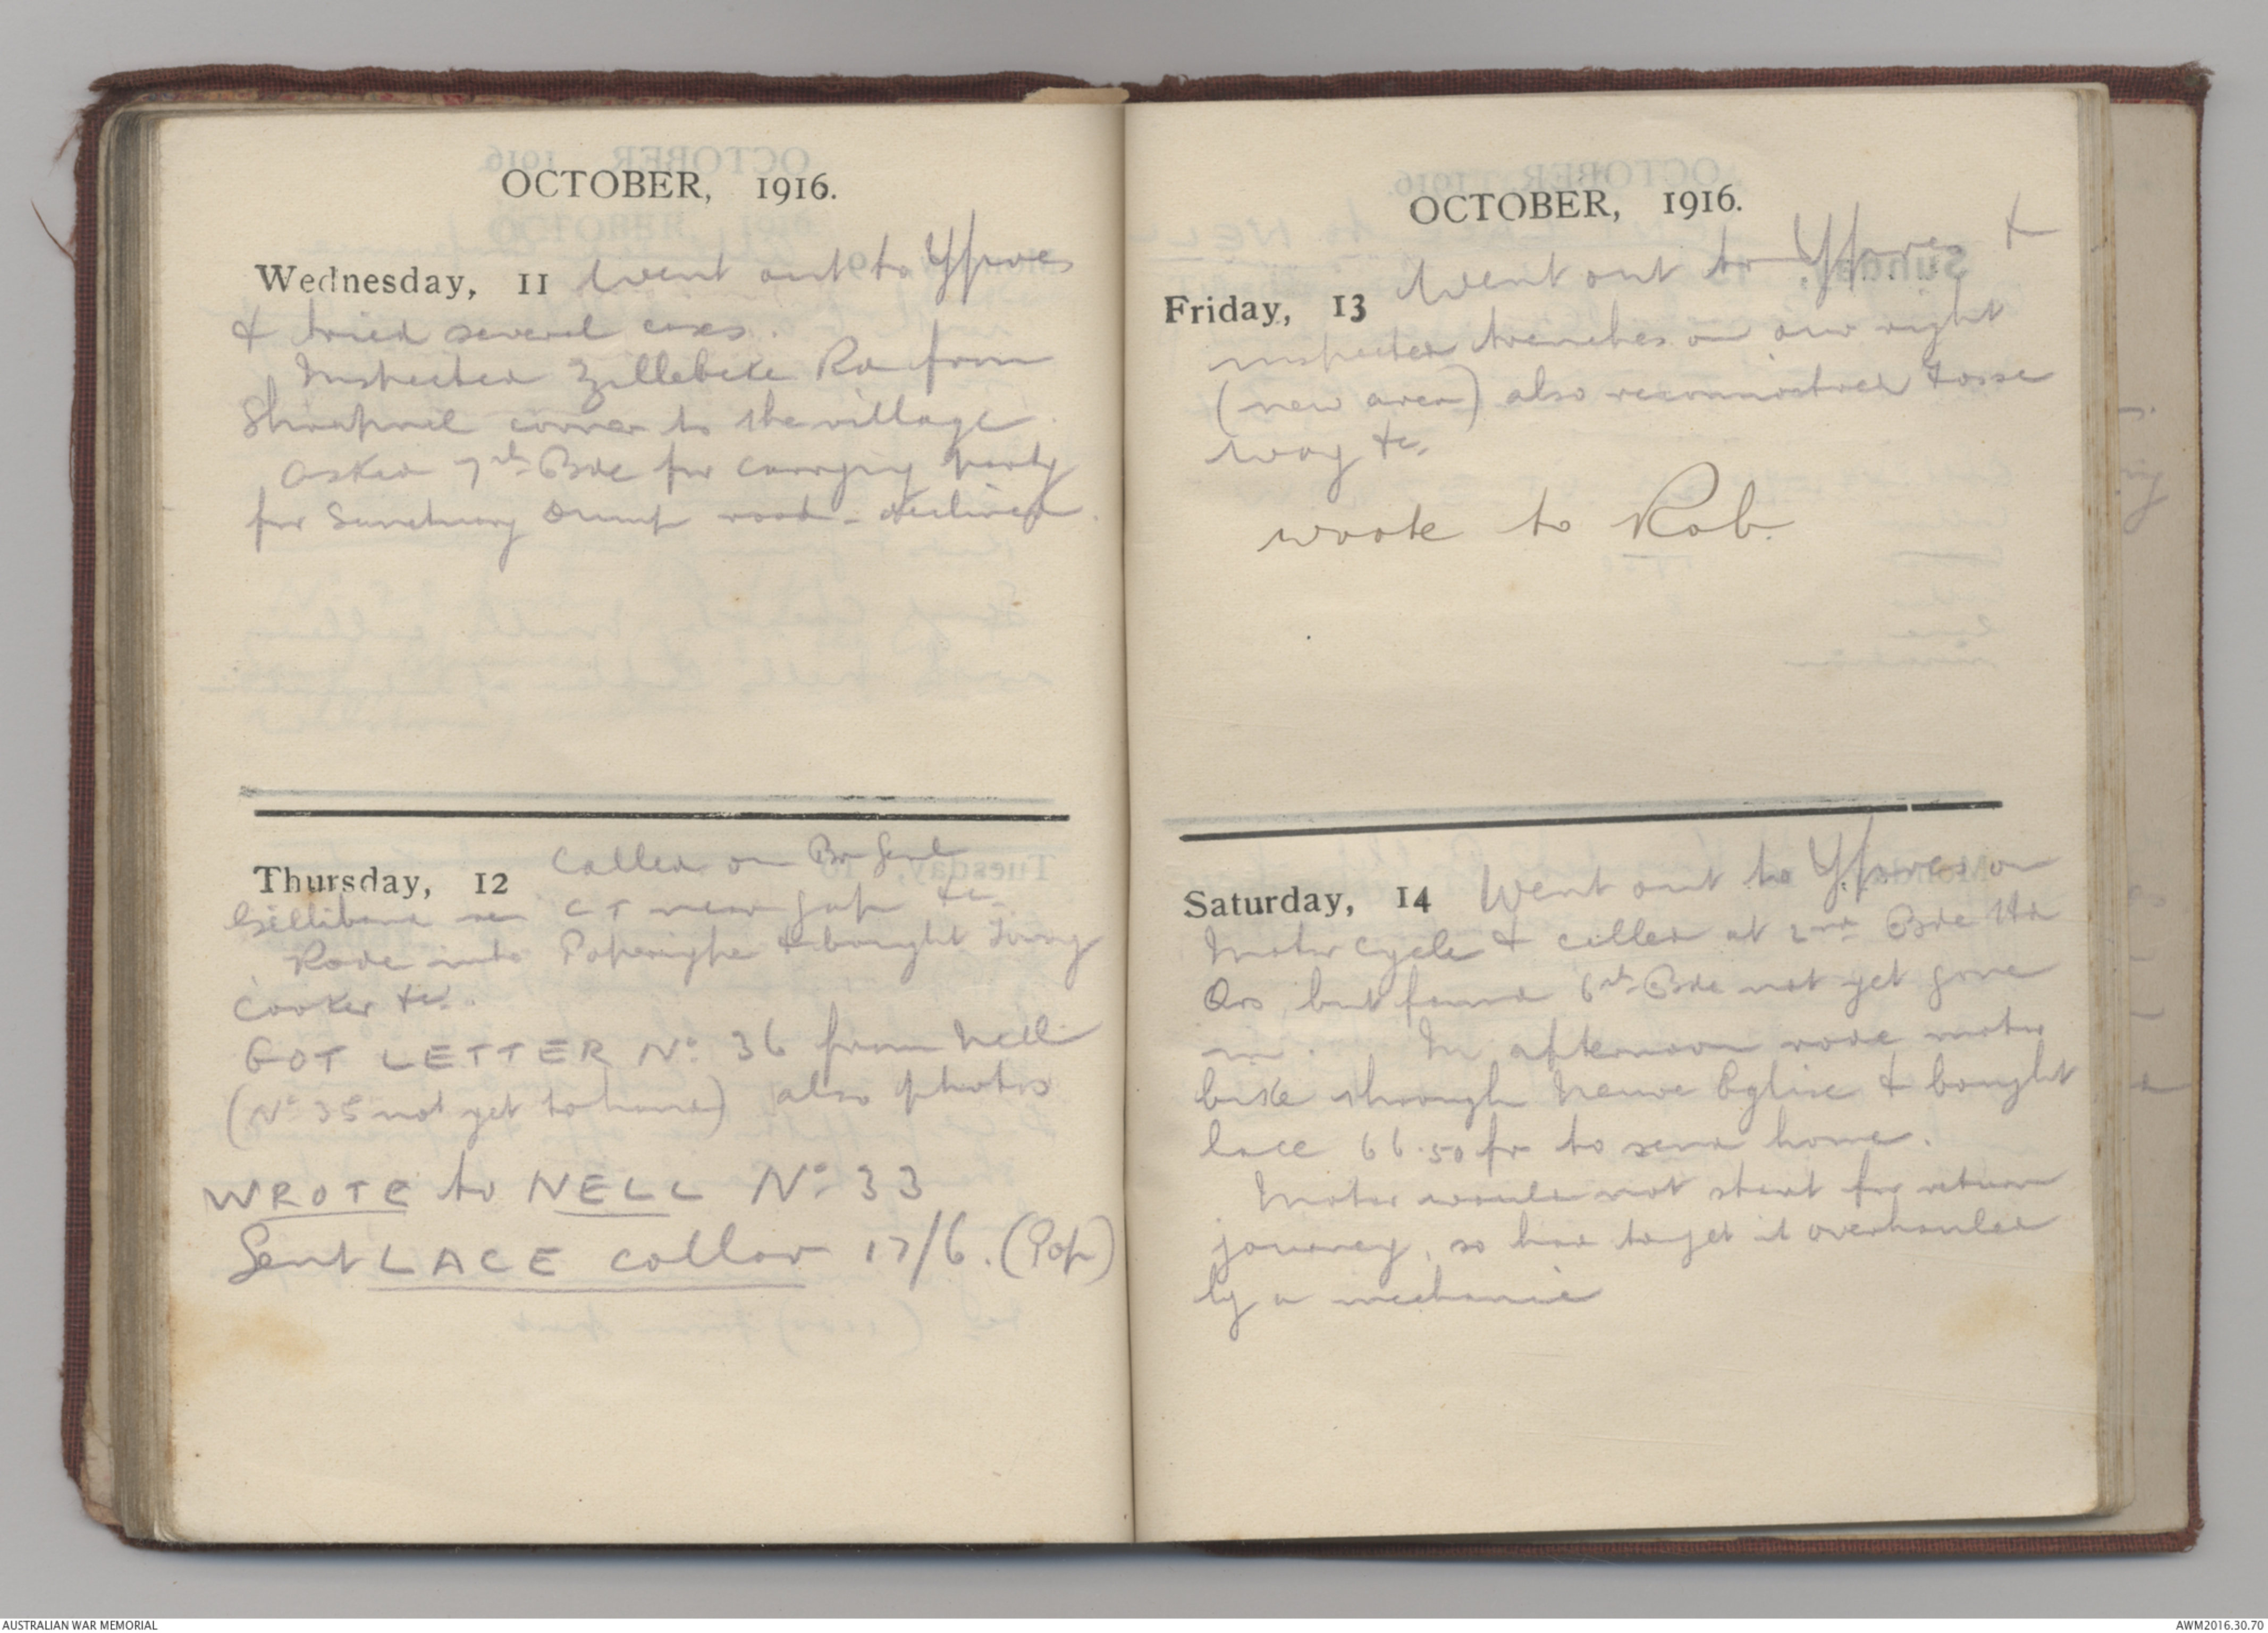 OCTOBER, 1916.
Wednesday, 11 Went out to Ypres
& tried several cases.
Inspected Zillebeke Rd from
Shrapnel corner to the village.
Asked 7th Bde for carrying party
for Sanctuary Dump road - declined.
Thursday, 12 Called on Br Genl
Gellibrand re CT near gap &c.
Rode into Poperinghe & bought Tommy
Cooker &c.
GOT LETTER No. 36 from Nell
(No 35 not yet to hand) also photos
WROTE to NELL No. 33
Sent LACE collar 17/6. (Pop)
OCTOBER, 1916.
Friday, 13 Went out to Ypres &
inspected trenches on our right
(new area) also reconnoitred Fosse
way &c.
wrote to Rob.
Saturday, 14 Went out to Ypres on
Motor cycle & called at 2nd Bde Hd
Qrs, but found 6th Bde not yet gone
in. In afternoon rode motor
bike through Neuve Eglise & bought
lace 66.50 fr to send home.
Motor would not start for return
journey, so had to get it overhauled
by a mechanic
AUSTRALIAN WAR MEMORIAL
AWM2016.30.70